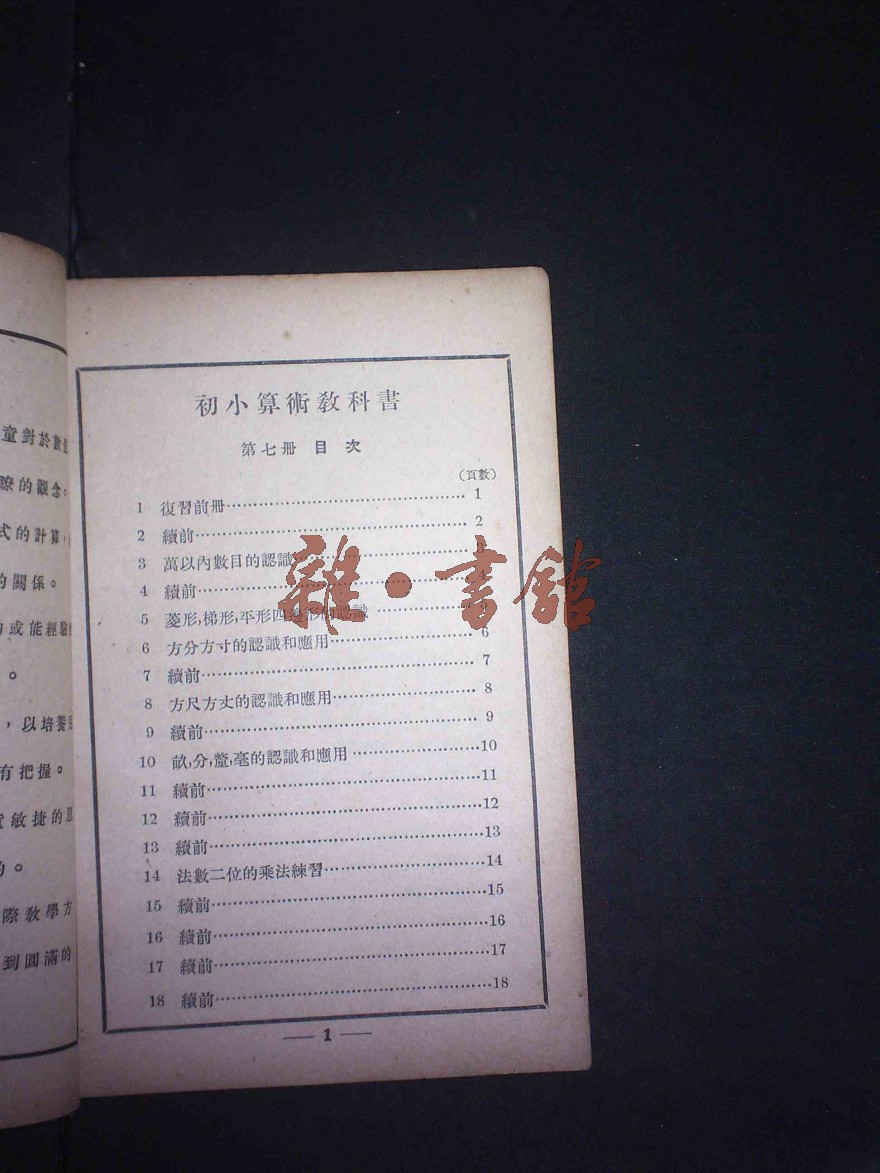 初小算術教科書
第七冊 目 次
(頁數)
1 復習前冊 1
2 續前 2
3 萬以內數目的認識 3
4 續前 4
5 菱形,梯形,平形四邊形的認識
6 方分方寸的認識和應用 6
7 續前 7
8 方尺方丈的認識和應用 8
9 續前 9
10 畝,分,釐,毫的認識和應用 10
11 續前 11
12 續前 12
13 續前 13
14 法數二位的乘法練習 14
15 續前 15
16 續前 16
17 續前 17
18 續前 18
— 1 —
雜·書館
童對於
瞭的觀念。
式的計算,
的關係。
或能經驗
。
,以培養
有把握。
敏捷的思
。
際敎學方
到圓滿的